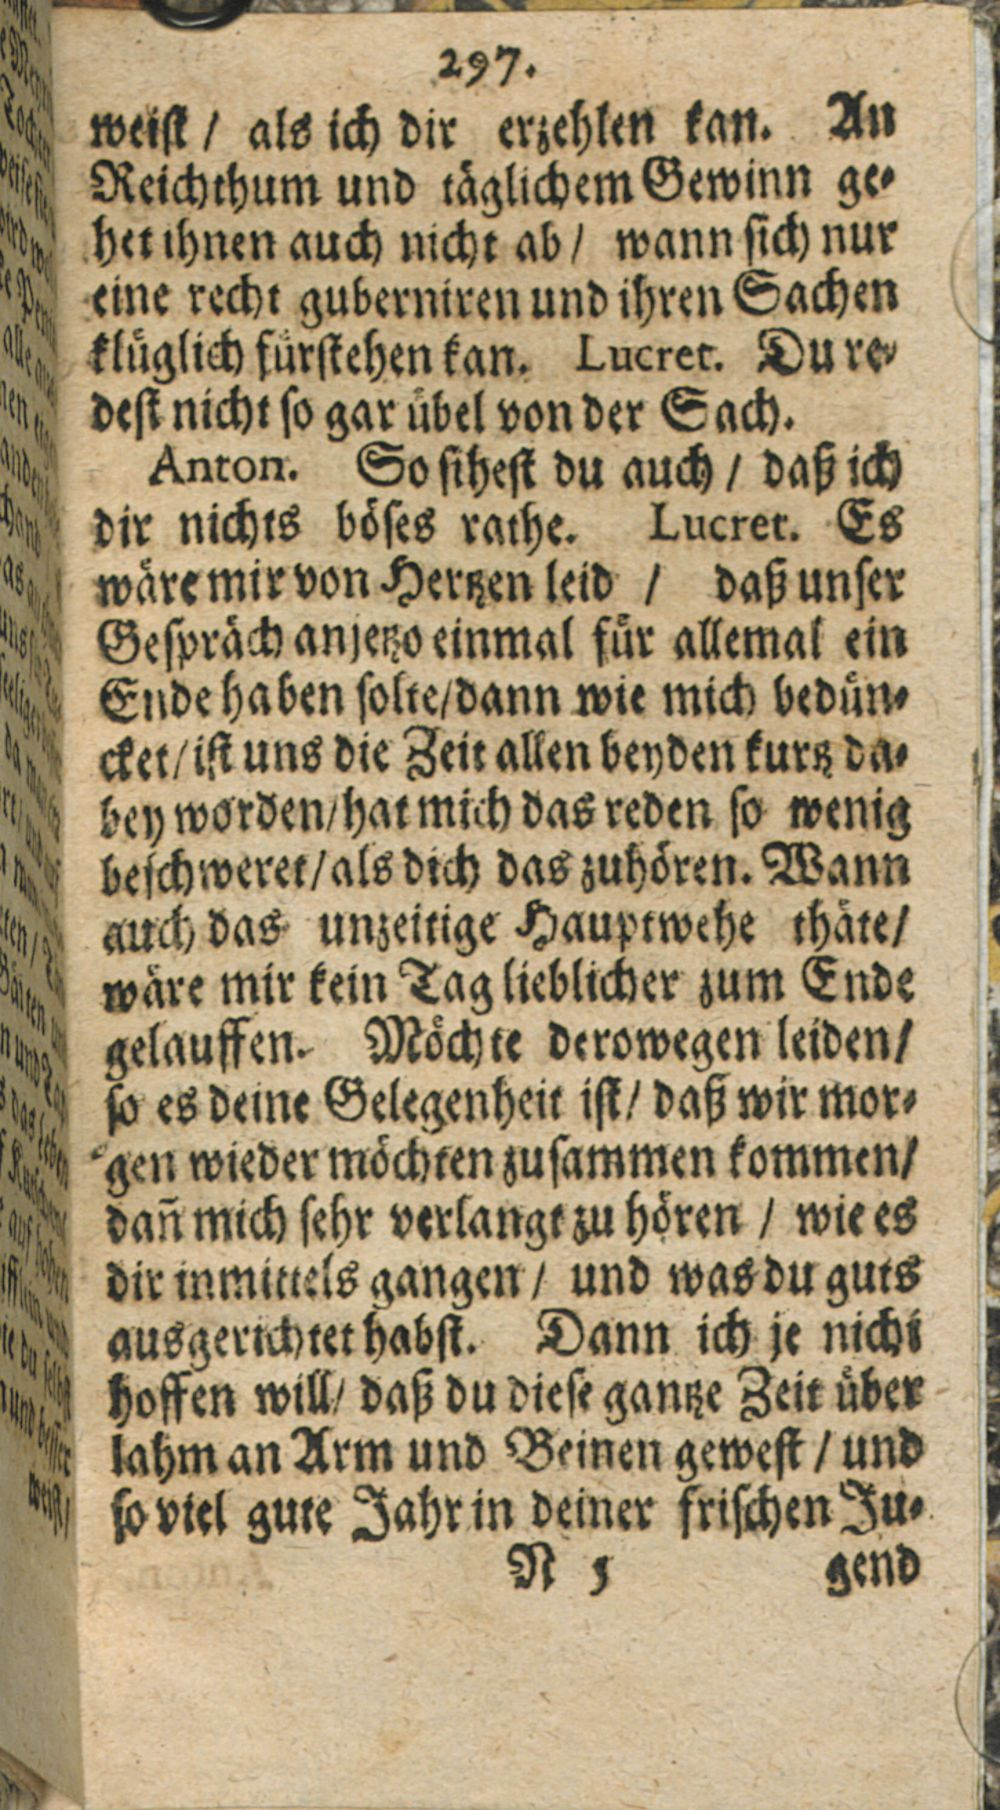 297.
weist / als ich dir erzehlen kan. An
Reichthum und täglichem Gewinn ge-
het ihnen auch nicht ab / wann sich nur
eine recht guberniren und ihren Sachen
klüglich fürstehen kan. Lucret. Du re-
dest nicht so gar übel von der Sach.
Anton. So sihest du auch / daß ich
dir nichts böses rathe. Lucret. Es
wäre mir von Hertzen leid / daß unser
Gespräch anjetzo einmal für allemal ein
Ende haben solte/dann wie mich bedün-
cket/ist uns die Zeit allen beyden kurtz da-
bey worden/hat mich das reden so wenig
beschweret/als dich das zuhören. Wann
auch das unzeitige Hauptwehe thäte/
wäre mir kein Tag lieblicher zum Ende
gelauffen. Möchte derowegen leiden/
so es deine Gelegenheit ist/ daß wir mor-
gen wieder möchten zusammen kommen/
dañ mich sehr verlangt zu hören / wie es
dir inmittels gangen / und was du guts
ausgerichtet habst. Dann ich je nicht
hoffen will/ daß du diese gantze Zeit über
lahm an Arm und Beinen gewest / und
so viel gute Jahr in deiner frischen Ju-
N 5 gend